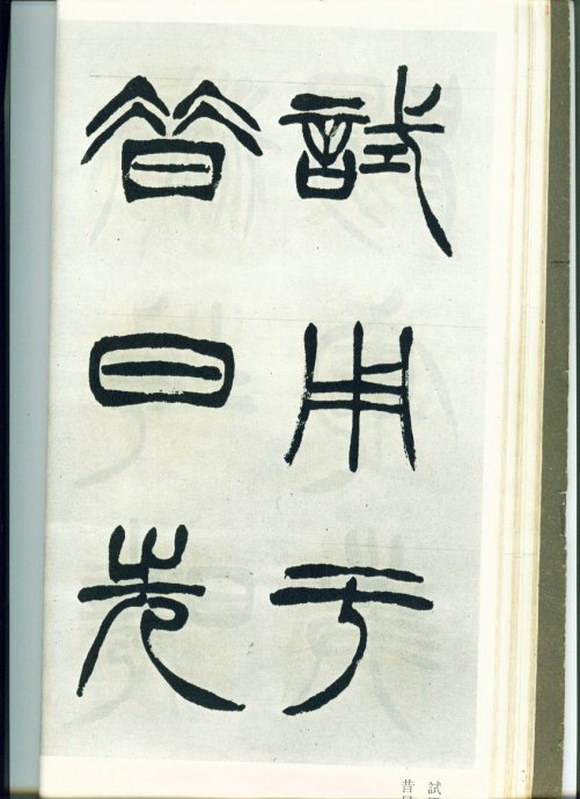 試用于
昔日先
試
昔